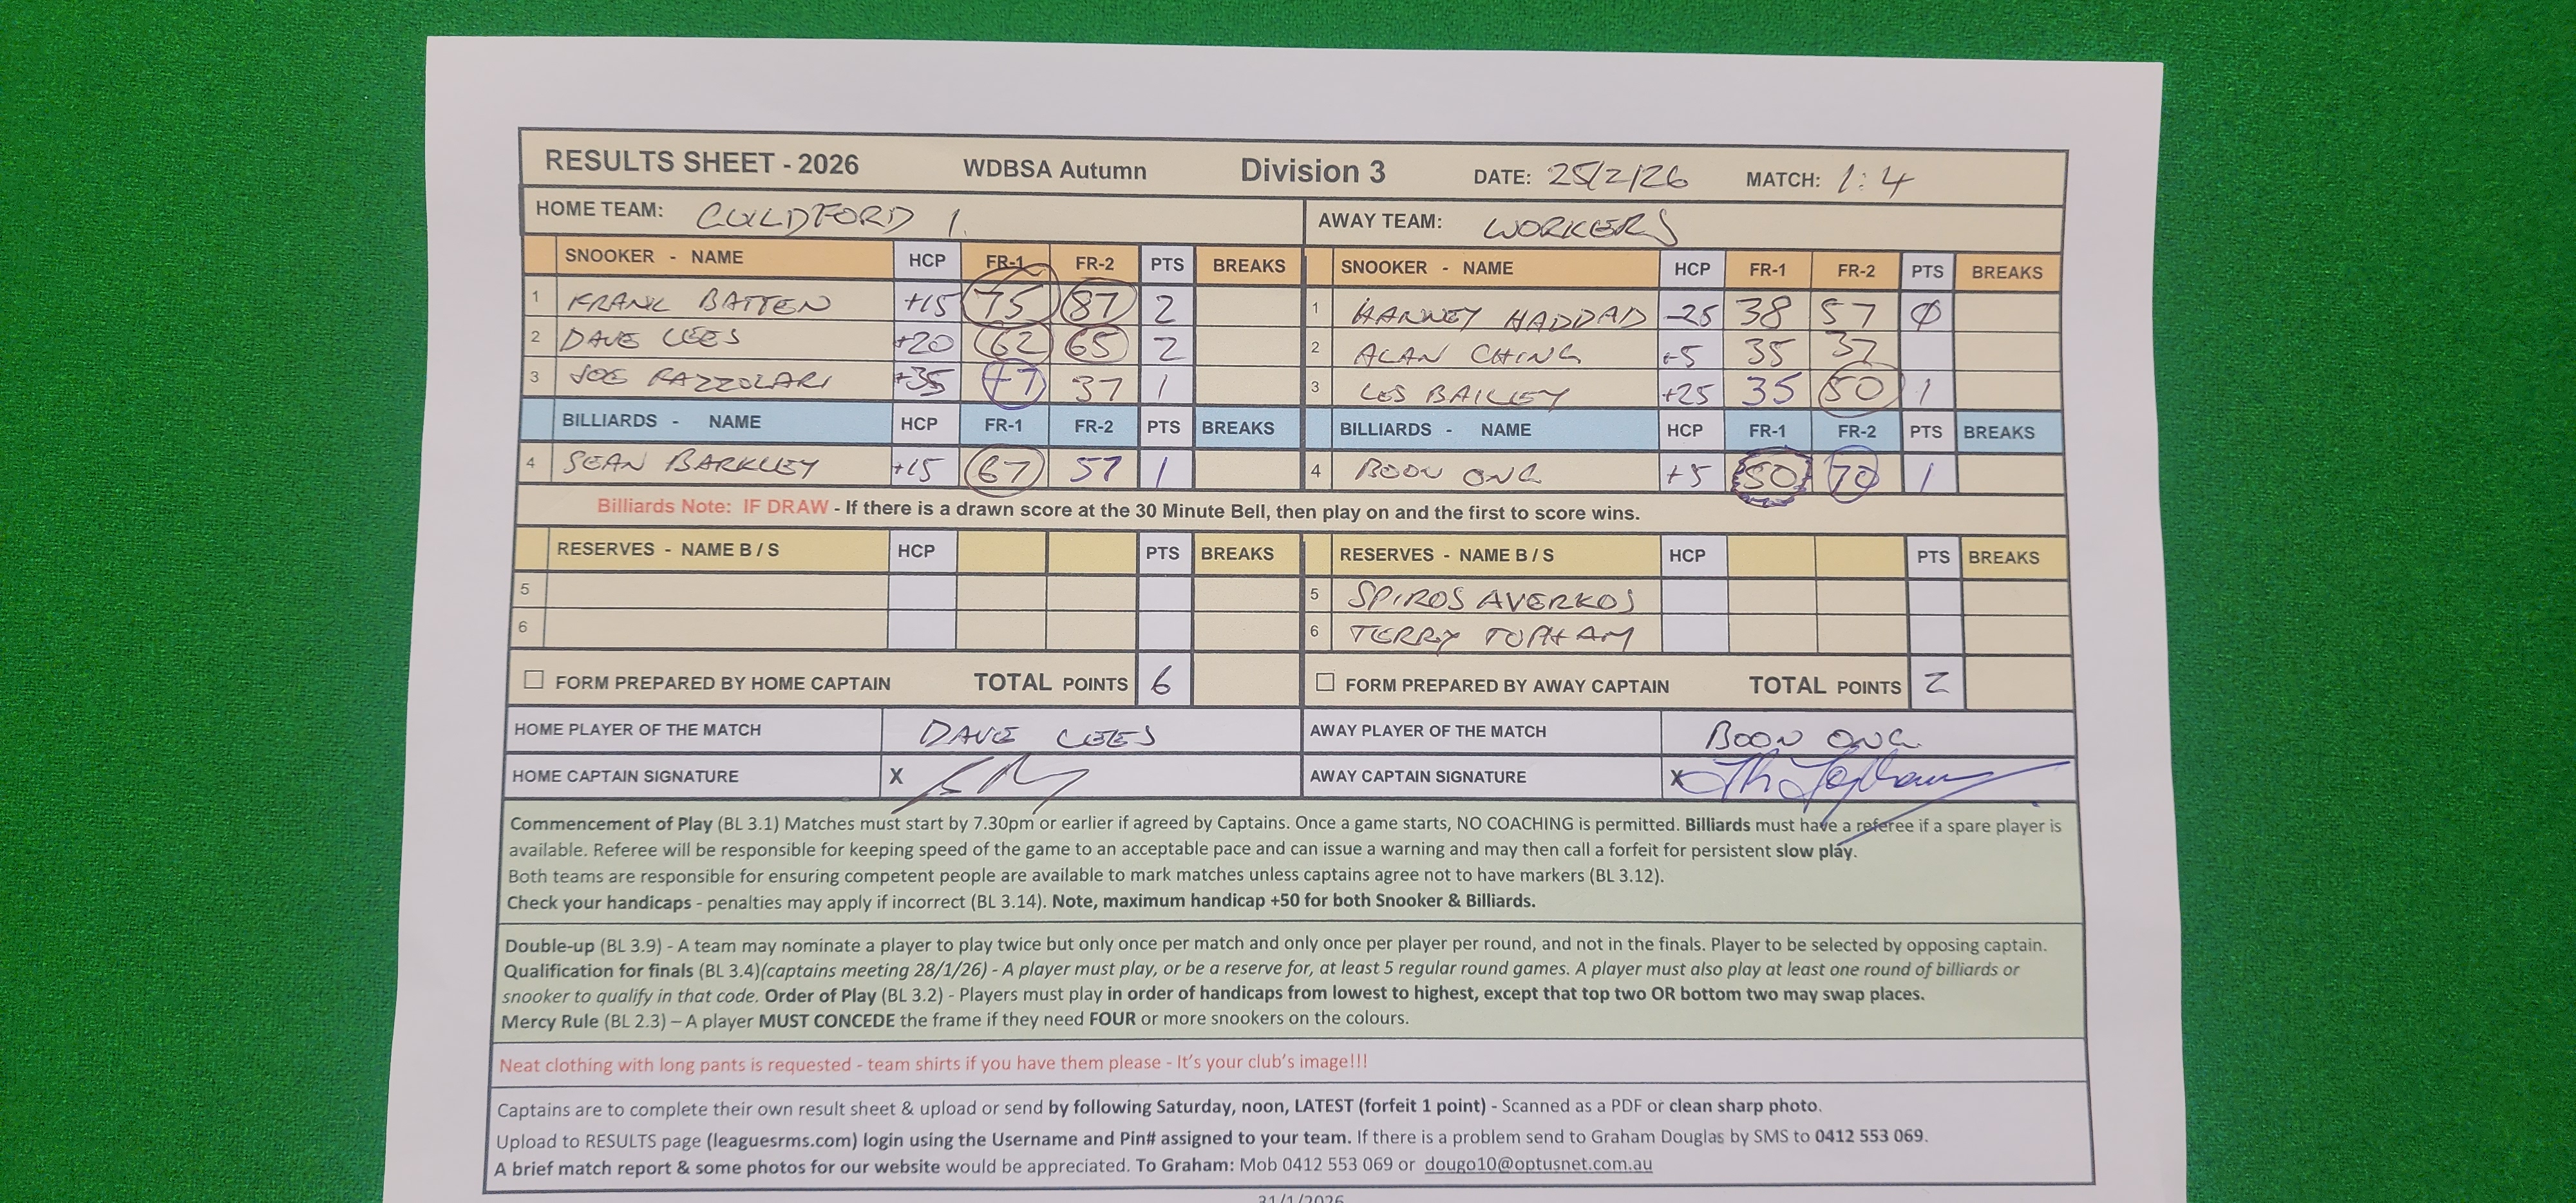 RESULTS SHEET - 2026 WDBSA Autumn Division 3 DATE: 25/2/26 MATCH: 1:4
HOME TEAM: GUILDFORD 1. AWAY TEAM: WORKERS
SNOOKER - NAME HCP FR-1 FR-2 PTS BREAKS SNOOKER - NAME HCP FR-1 FR-2 PTS BREAKS
1 FRANK BATTEN +15 75 87 2 1 HANNEY HADDAD -25 38 57 0
2 DAVE LEES +20 62 65 2 2 ALAN CHING +5 35 37
3 JOE FAZZOLARI +35 37 1 3 LES BAILEY +25 35 50 1
BILLIARDS - NAME HCP FR-1 FR-2 PTS BREAKS BILLIARDS - NAME HCP FR-1 FR-2 PTS BREAKS
4 SEAN BARKLEY +15 67 57 1 4 BOON ONG +5 50 70 1
Billiards Note: IF DRAW - If there is a drawn score at the 30 Minute Bell, then play on and the first to score wins.
RESERVES - NAME B / S HCP PTS BREAKS RESERVES - NAME B / S HCP PTS BREAKS
5 5 SPIROS AVERKOS
6 6 TERRY TOPHAM
FORM PREPARED BY HOME CAPTAIN TOTAL POINTS 6 FORM PREPARED BY AWAY CAPTAIN TOTAL POINTS 2
HOME PLAYER OF THE MATCH DAVE LEES AWAY PLAYER OF THE MATCH BOON ONG
HOME CAPTAIN SIGNATURE X AWAY CAPTAIN SIGNATURE X
Commencement of Play (BL 3.1) Matches must start by 7.30pm or earlier if agreed by Captains. Once a game starts, NO COACHING is permitted. Billiards must have a referee if a spare player is
available. Referee will be responsible for keeping speed of the game to an acceptable pace and can issue a warning and may then call a forfeit for persistent slow play.
Both teams are responsible for ensuring competent people are available to mark matches unless captains agree not to have markers (BL 3.12).
Check your handicaps - penalties may apply if incorrect (BL 3.14). Note, maximum handicap +50 for both Snooker & Billiards.
Double-up (BL 3.9) - A team may nominate a player to play twice but only once per match and only once per player per round, and not in the finals. Player to be selected by opposing captain.
Qualification for finals (BL 3.4)(captains meeting 28/1/26) - A player must play, or be a reserve for, at least 5 regular round games. A player must also play at least one round of billiards or
snooker to qualify in that code. Order of Play (BL 3.2) - Players must play in order of handicaps from lowest to highest, except that top two OR bottom two may swap places.
Mercy Rule (BL 2.3) – A player MUST CONCEDE the frame if they need FOUR or more snookers on the colours.
Neat clothing with long pants is requested - team shirts if you have them please - It's your club's image!!!
Captains are to complete their own result sheet & upload or send by following Saturday, noon, LATEST (forfeit 1 point) - Scanned as a PDF or clean sharp photo.
Upload to RESULTS page (leaguesrms.com) login using the Username and Pin# assigned to your team. If there is a problem send to Graham Douglas by SMS to 0412 553 069.
A brief match report & some photos for our website would be appreciated. To Graham: Mob 0412 553 069 or dougo10@optusnet.com.au
31/1/2026